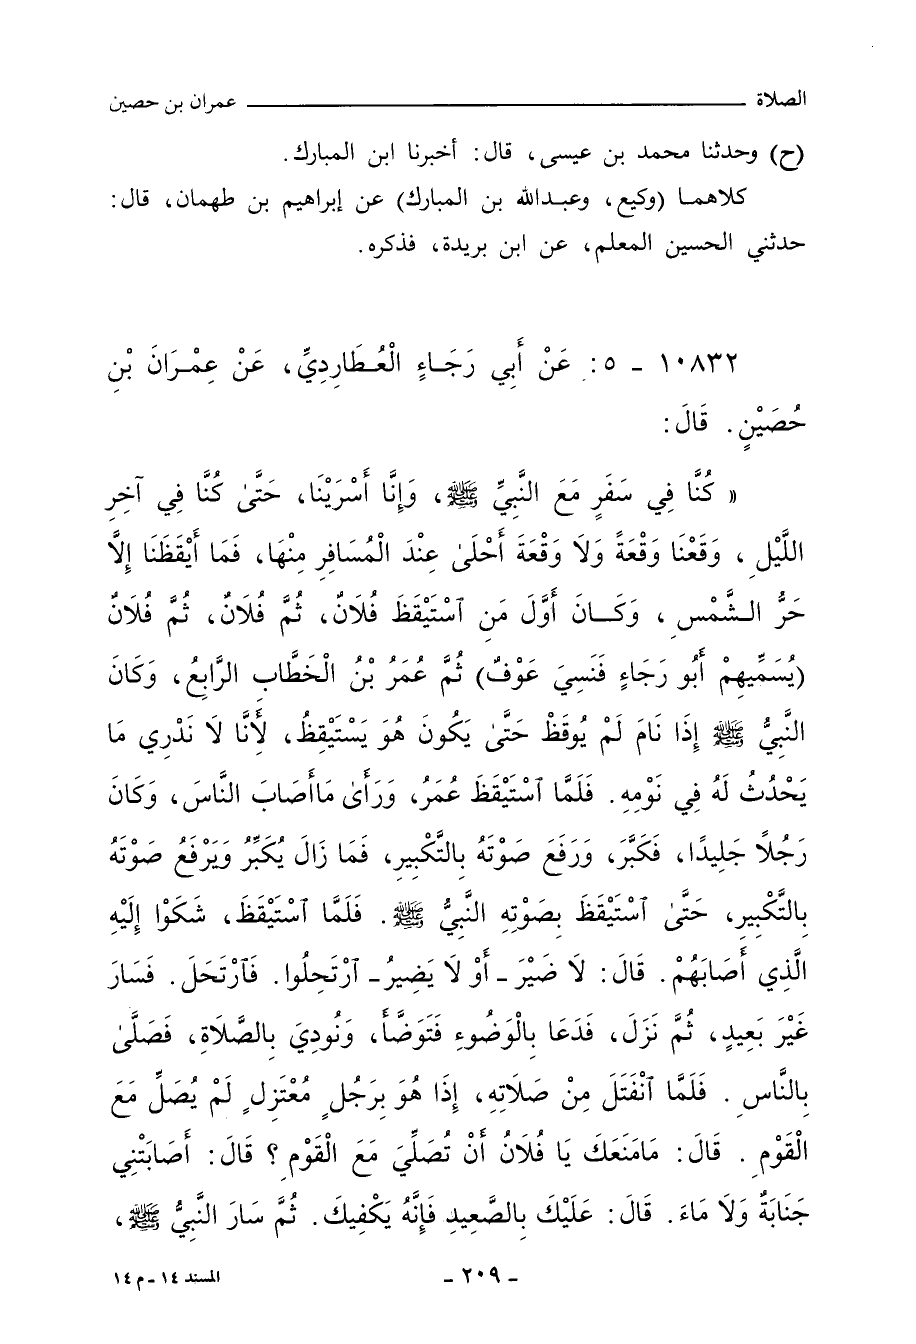 الصلاة ــــــــــ عمران بن حصين
(ح) وحدثنا محمد بن عيسى، قال: أخبرنا ابن المبارك.
كلاهما (وكيع، وعبدالله بن المبارك) عن إبراهيم بن طهمان، قال:
حدثني الحسين المعلم، عن ابن بريدة، فذكره.
١٠٨٣٢ - ٥: عَنْ أَبِي رَجَاءٍ الْعُطَارِدِيِّ، عَنْ عِمْرَانَ بْنِ
حُصَيْنٍ. قَالَ:
« كُنَّا فِي سَفَرٍ مَعَ النَّبِيِّ ﷺ، وَإِنَّا أَسْرَيْنَا، حَتَّىٰ كُنَّا فِي آخِرِ
اللَّيْلِ، وَقَعْنَا وَقْعَةً وَلَا وَقْعَةَ أَحْلَىٰ عِنْدَ الْمُسَافِرِ مِنْهَا، فَمَا أَيْقَظَنَا إِلَّا
حَرُّ الشَّمْسِ، وَكَانَ أَوَّلَ مَنِ ٱسْتَيْقَظَ فُلَانٌ، ثُمَّ فُلَانٌ، ثُمَّ فُلَانٌ
(يُسَمِّيهِمْ أَبُو رَجَاءٍ فَنَسِيَ عَوْفٌ) ثُمَّ عُمَرُ بْنُ الْخَطَّابِ الرَّابِعُ، وَكَانَ
النَّبِيُّ ﷺ إِذَا نَامَ لَمْ يُوقَظْ حَتَّىٰ يَكُونَ هُوَ يَسْتَيْقِظُ، لِأَنَّا لَا نَدْرِي مَا
يَحْدُثُ لَهُ فِي نَوْمِهِ. فَلَمَّا ٱسْتَيْقَظَ عُمَرُ، وَرَأَىٰ مَاأَصَابَ النَّاسَ، وَكَانَ
رَجُلًا جَلِيدًا، فَكَبَّرَ، وَرَفَعَ صَوْتَهُ بِالتَّكْبِيرِ، فَمَا زَالَ يُكَبِّرُ وَيَرْفَعُ صَوْتَهُ
بِالتَّكْبِيرِ، حَتَّىٰ ٱسْتَيْقَظَ بِصَوْتِهِ النَّبِيُّ ﷺ. فَلَمَّا ٱسْتَيْقَظَ، شَكَوْا إِلَيْهِ
الَّذِي أَصَابَهُمْ. قَالَ: لَا ضَيْرَ - أَوْ لَا يَضِيرُ - ٱرْتَحِلُوا. فَٱرْتَحَلَ. فَسَارَ
غَيْرَ بَعِيدٍ، ثُمَّ نَزَلَ، فَدَعَا بِالْوَضُوءِ فَتَوَضَّأَ، وَنُودِيَ بِالصَّلَاةِ، فَصَلَّىٰ
بِالنَّاسِ. فَلَمَّا ٱنْفَتَلَ مِنْ صَلَاتِهِ، إِذَا هُوَ بِرَجُلٍ مُعْتَزِلٍ لَمْ يُصَلِّ مَعَ
الْقَوْمِ. قَالَ: مَامَنَعَكَ يَا فُلَانُ أَنْ تُصَلِّيَ مَعَ الْقَوْمِ؟ قَالَ: أَصَابَتْنِي
جَنَابَةٌ وَلَا مَاءَ. قَالَ: عَلَيْكَ بِالصَّعِيدِ فَإِنَّهُ يَكْفِيكَ. ثُمَّ سَارَ النَّبِيُّ ﷺ،
- ٢٠٩ -
المسند ١٤ - م ١٤